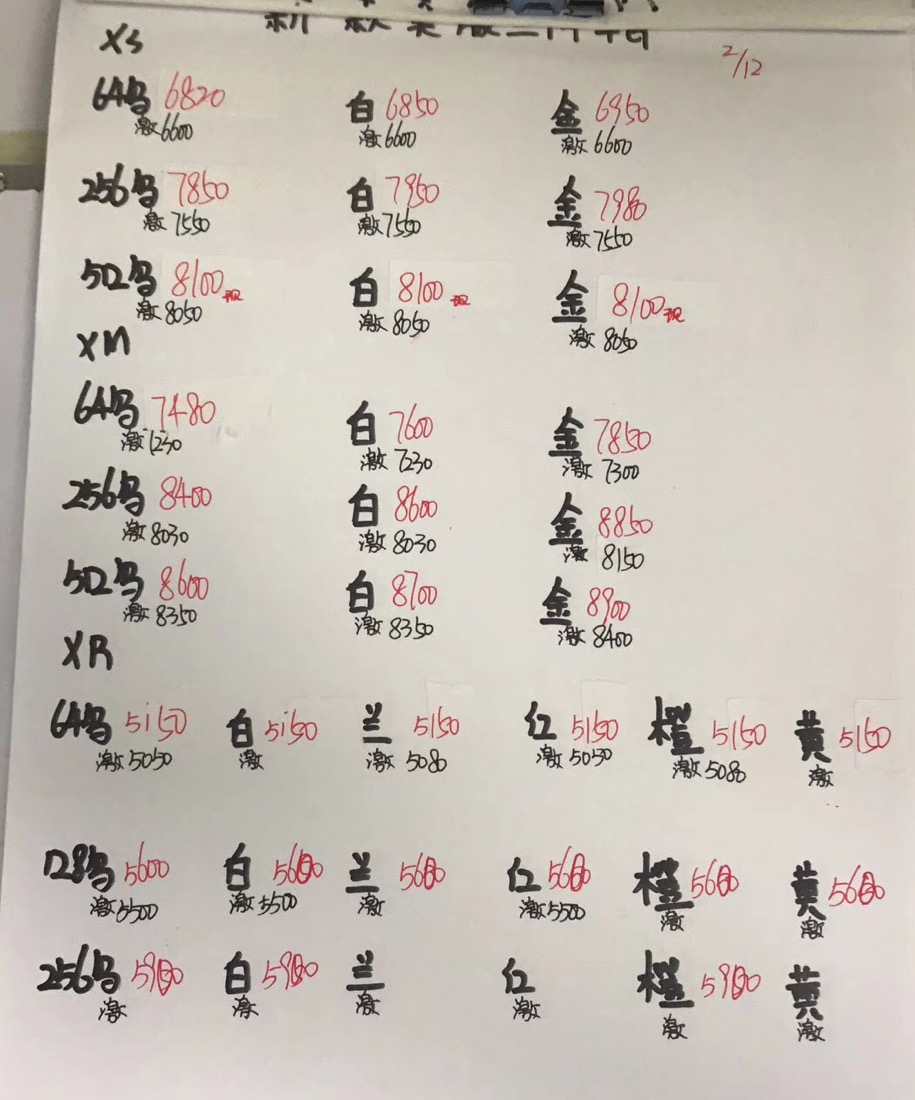 2/12
XS
64乌 6820 白 6850 金 6950
激6600 激6600 激6600
256乌 7850 白 7950 金 7980
激7550 激7550 激7550
512乌 8100现 白 8100现 金 8100现
激8050 激8050 激8050
XM
64乌 7480 白 7600 金 7850
激7230 激7230 激7300
256乌 8400 白 8600 金 8850
激8030 激8030 激8150
512乌 8600 白 8700 金 8900
激8350 激8350 激8400
XR
64乌 5150 白 5150 兰 5150 红 5150 橙 5150 黄 5150
激5050 激 激5080 激5050 激5080 激
128乌 5600 白 5600 兰 5600 红 5600 橙 5600 黄 5600
激5500 激5500 激 激5500 激 激
256乌 5900 白 5900 兰 红 橙 5900 黄
激 激 激 激 激 激